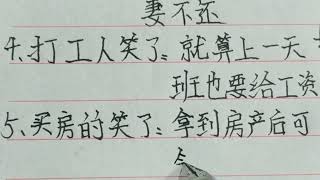 妻不还
4、打工人笑了：就算上一天
班也要给工资
5、买房的笑了：拿到房产后可